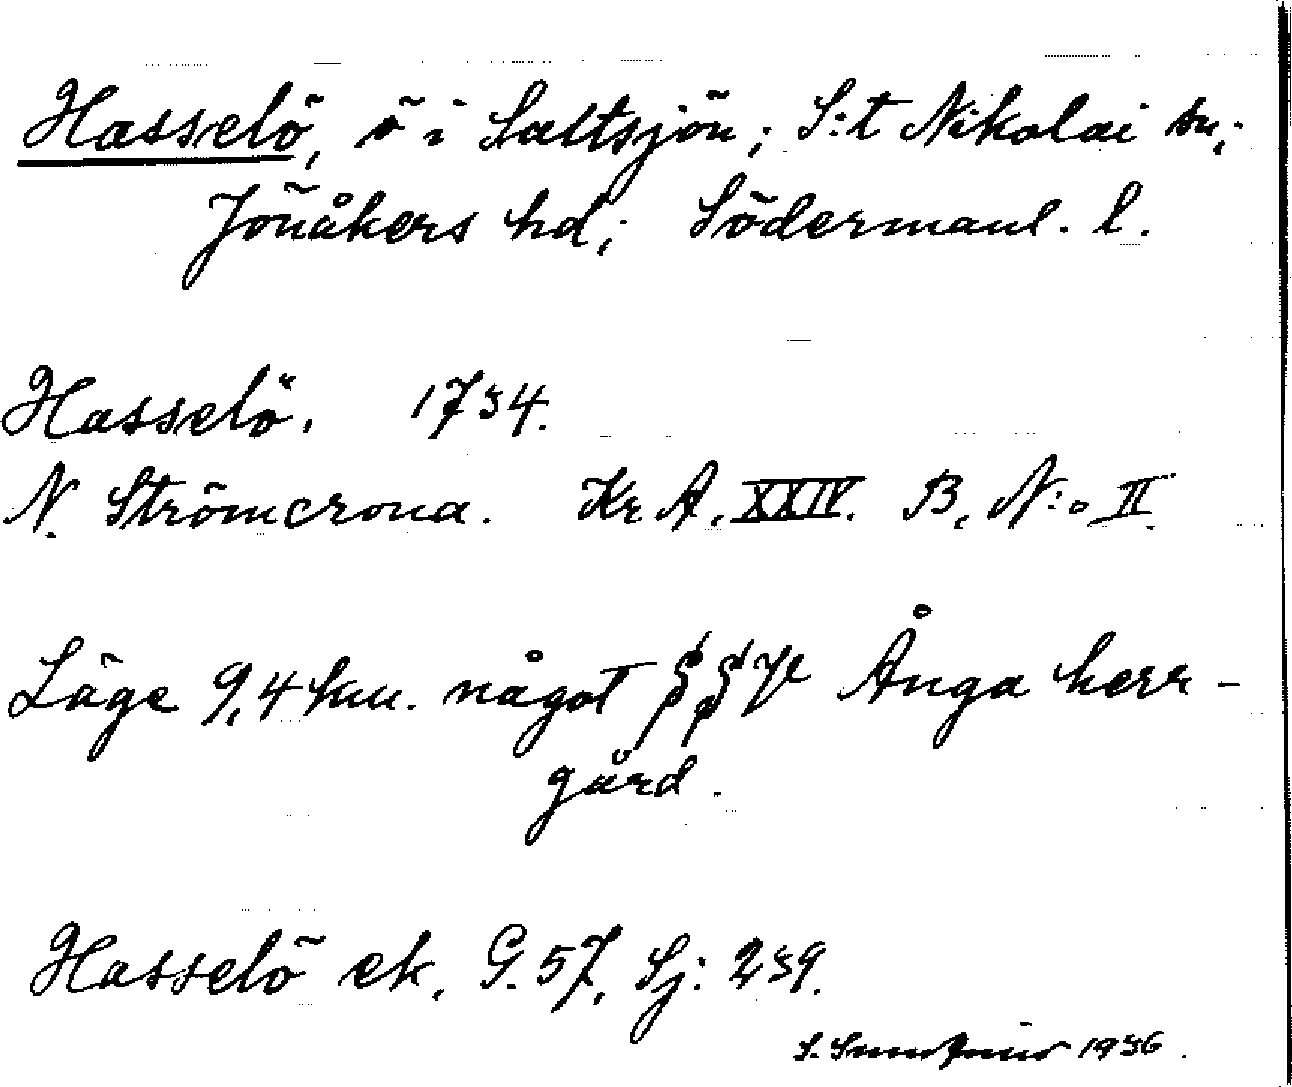 Hasselö, ö i Saltsjön; S:t Nikolai sn;
Jönåkers hd; Södermanl. l.
Hasselö. 1734.
N. Strömcrona. Kr A. XXIV. B, N:o II.
Läge 9,4 km. något SSV Ånga herr-
gård.
Hasselö ek. G. 57, Sj: 239.
S. 1936.